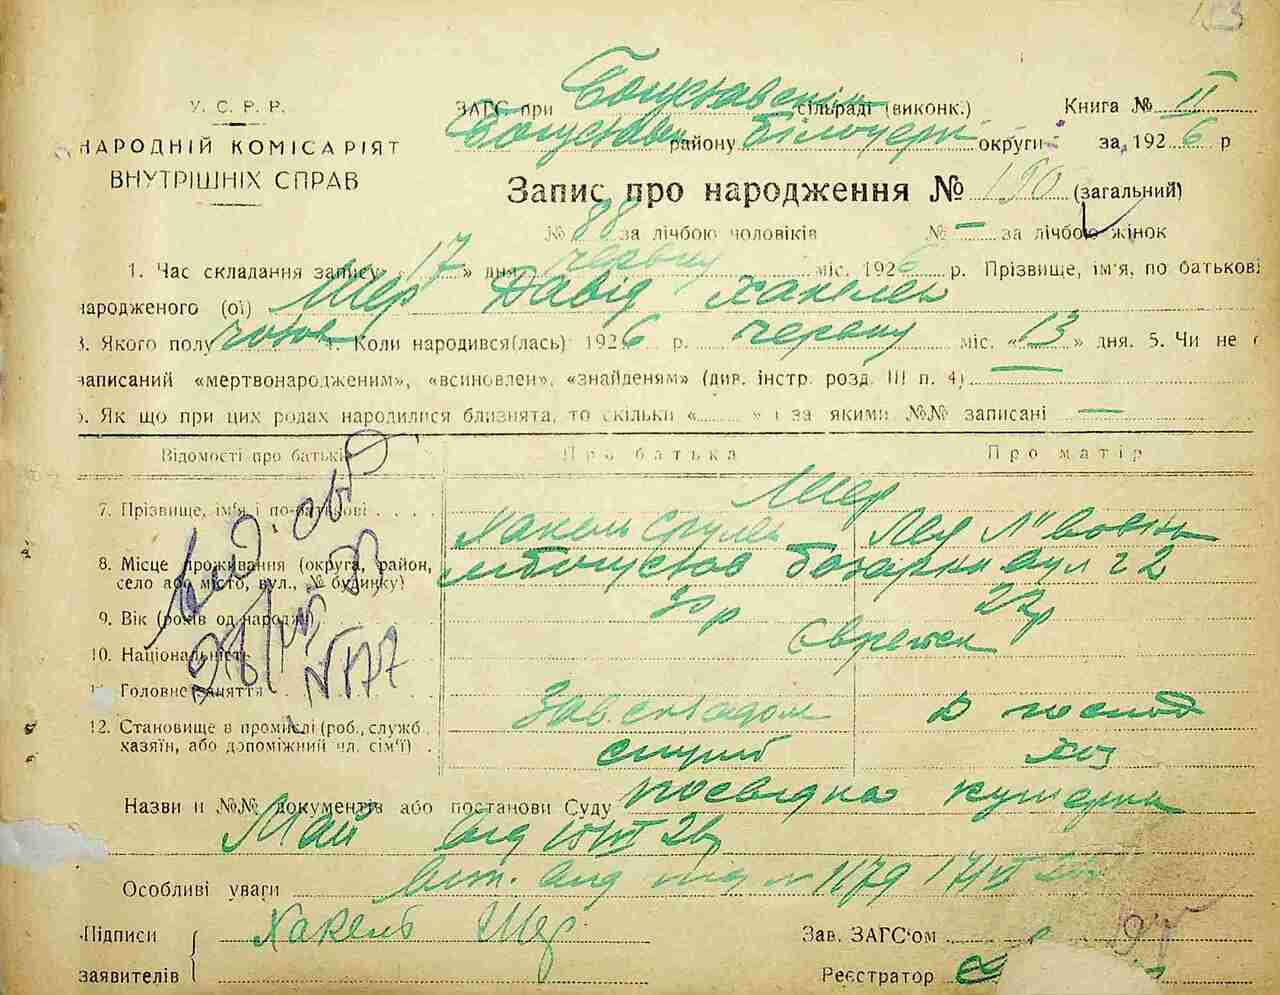 ЗАГС при Богуславськ сільраді (виконк.) Книга № II
У. С. Р. Р.
Богуславськ району Білоцерк округи за 1926 р
НАРОДНІЙ КОМІСАРІЯТ
ВНУТРІШНІХ СПРАВ
Запис про народження № 190 (загальний)
№ 88 за лічбою чоловіків № — за лічбою жінок
1. Час складання запису «17» дня червня міс. 1926 р. Прізвище, ім'я, по батькові
народженого (ої) Шер Давід Хакелев
3. Якого полу чолов 4. Коли народився(лась) 1926 р. червня міс. «13» дня. 5. Чи не
записаний «мертвонародженим», «всиновлен», «знайденям» (див. інстр. розд. III п. 4) —
6. Як що при цих родах народилися близнята, то скільки «...... » і за якими №№ записані —
Відомості про батьків Про батька Про матір
Шер
7. Прізвище, ім'я і по-батькові . . . .
8. Місце проживання (округа, район,
село або місто, вул., № будинку) Богуслав базарна вул 2
9. Вік (років од народж.) 30 р 22 р
10. Національність Єврейск
11. Головне заняття Зав. складом Д господ
12. Становище в промислі (роб., служб.
хазяїн, або допоміжний чл. сім'ї) служб хоз
Назви и №№ документів або постанови Суду посвідка
від 26
Особливі уваги № 1179 17/VI 26
Підписи Хакель Шер Зав. ЗАГС'ом
заявителів Реєстратор
№ 177